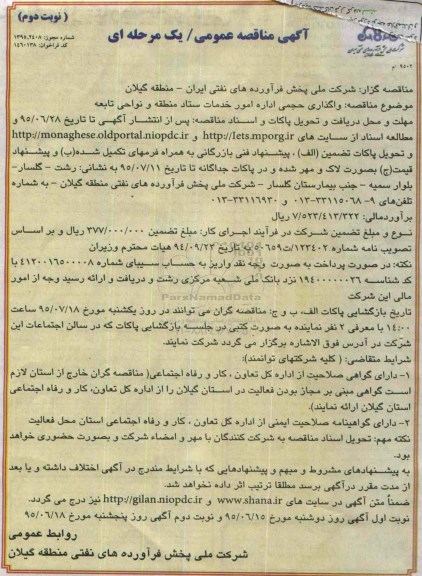 ( نوبت دوم )
آگهی مناقصه عمومی/ یک مرحله ای
شماره مجوز: ۱۳۹۵،۲۴۰۸
کد فراخوان: ۱۴۶۰۱۳۸
مناقصه گزار: شرکت ملی پخش فرآورده های نفتی ایران – منطقه گیلان
موضوع مناقصه: واگذاری حجمی اداره امور خدمات ستاد منطقه و نواحی تابعه
مهلت و محل دریافت و تحویل پاکات و اسناد مناقصه: پس از انتشار آگهی تا تاریخ ۹۵/۰۶/۲۸ و
مطالعه اسناد از سایت های http://Iets.mporg.ir و http://monaghese.oldportal.niopdc.ir
و تحویل پاکات تضمین (الف) ، پیشنهاد فنی بازرگانی به همراه فرمهای تکمیل شده(ب) و پیشنهاد
قیمت(ج) بصورت لاک و مهر شده و در پاکات جداگانه تا تاریخ ۹۵/۰۷/۱۱ به نشانی: رشت – گلسار–
بلوار سمیه – جنب بیمارستان گلسار – شرکت ملی پخش فرآورده های نفتی منطقه گیلان – به شماره
تلفن‌های ۹– ۳۳۱۱۵۰۶۸–۰۱۳ و ۳۳۱۱۶۹۳۰–۰۱۳
برآوردمالی: ۷/۵۲۳/۴۱۳/۳۲۲ ریال
نوع و مبلغ تضمین شرکت در فرآیند اجرای کار: مبلغ تضمین ۳۷۷/۰۰۰/۰۰۰ ریال و بر اساس
تصویب نامه شماره ۱۲۳۴۰۲/ت۵۰۶۵۹ه به تاریخ ۹۴/۰۹/۲۲ هیات محترم وزیران
نکته: در صورت پرداخت به صورت وجه نقد واریز به حساب سیبای شماره ۴۱۲۰۰۱۶۵۰۰۰۰۸ با
کد شناسه ۱۹۴۰۰۰۰۰۰۲۶ نزد بانک ملی شعبه مرکزی رشت و دریافت و ارائه رسید وجه از امور
مالی این شرکت
تاریخ بازگشایی پاکات الف، ب و ج: مناقصه گران می توانند در روز یکشنبه مورخ ۹۵/۰۷/۱۸ ساعت
۱۴:۰۰ با معرفی ۲ نفر نماینده به صورت کتبی در جلسه بازگشایی پاکات که در سالن اجتماعات این
شرکت در آدرس فوق الاشاره برگزار می گردد شرکت نمایند.
شرایط متقاضی: ( کلیه شرکتهای توانمند):
۱– دارای گواهی صلاحیت از اداره کل تعاون ، کار و رفاه اجتماعی( مناقصه گران خارج از استان لازم
است گواهی مبنی بر مجاز بودن فعالیت در استان گیلان را از اداره کل تعاون، کار و رفاه اجتماعی
استان گیلان ارائه نمایند).
۲– دارای گواهینامه صلاحیت ایمنی از اداره کل تعاون ، کار و رفاه اجتماعی استان محل فعالیت
نکته مهم: تحویل اسناد مناقصه به شرکت کنندگان با مهر و امضاء شرکت و بصورت حضوری خواهد
بود.
به پیشنهادهای مشروط و مبهم و پیشنهادهایی که با شرایط مندرج در آگهی اختلاف داشته و یا بعد
از مدت مقرر درآگهی برسد مطلقا ترتیب اثر داده نخواهد شد.
ضمناً متن آگهی در سایت های www.shana.ir و http://gilan.niopdc.ir نیز درج می گردد.
نوبت اول آگهی روز دوشنبه مورخ ۹۵/۰۶/۱۵ و نوبت دوم آگهی روز پنجشنبه مورخ ۹۵/۰۶/۱۸
روابط عمومی
شرکت ملی پخش فرآورده های نفتی منطقه گیلان
ParsNamadData